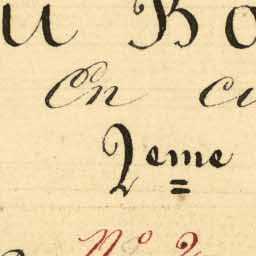 u Bo
En ci
2eme
No 2